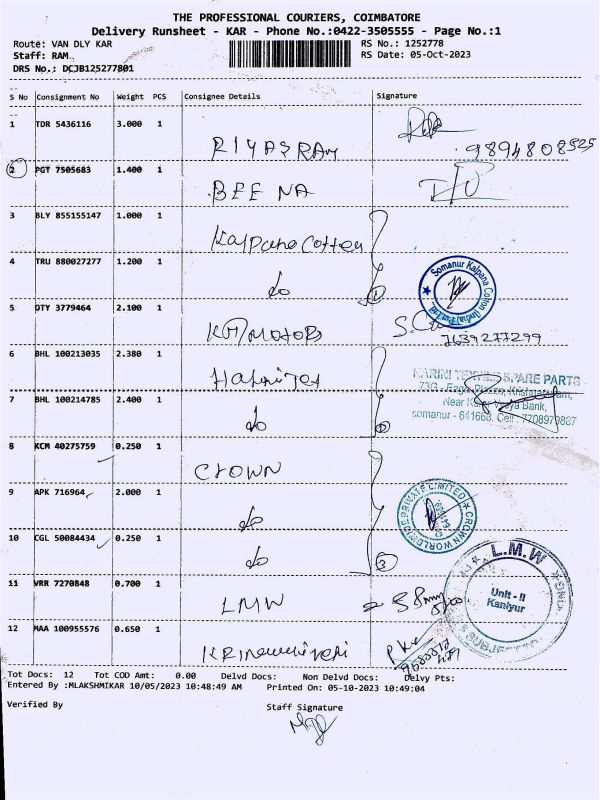 THE PROFESSIONAL COURIERS, COIMBATORE
Delivery Runsheet - KAR - Phone No.:0422-3505555 - Page No.:1
Route: VAN DLY KAR RS No.: 1252778
Staff: RAM RS Date: 05-Oct-2023
DRS No.: DCJB125277801
S No Consignment No Weight PCS Consignee Details Signature
1 TDR 5436116 3.000 1 RIYASRAM 9894808525
2 PGT 7505683 1.400 1 BEENA
3 BLY 855155147 1.000 1 Kalpana Cotten
4 TRU 880027277 1.200 1 do 1 Somanur Kalpana Cotton (India) Pvt Ltd.
5 OTY 3779464 2.100 1 KM Motors 7639277299
6 BHL 100213035 2.380 1 TEXTILE SPARE PARTS
73G - Eagle Plazza, Krishnapuram,
7 BHL 100214785 2.400 1 do 2 Near Karur Vysya Bank,
somanur - 641668. Cell : 7708970887
8 KCM 40275759 0.250 1 CROWN
9 APK 716964 2.000 1 do CROWN WORLDWIDE PRIVATE LIMITED
10 CGL 50084434 0.250 1 do 3
11 VRR 7270848 0.700 1 LMW L.M.W Unit - II Kaniyur
12 MAA 100955576 0.650 1
Tot Docs: 12 Tot COD Amt: 0.00 Delvd Docs: Non Delvd Docs: Delvy Pts:
Entered By :MLAKSHMIKAR 10/05/2023 10:48:49 AM Printed On: 05-10-2023 10:49:04
Verified By Staff Signature